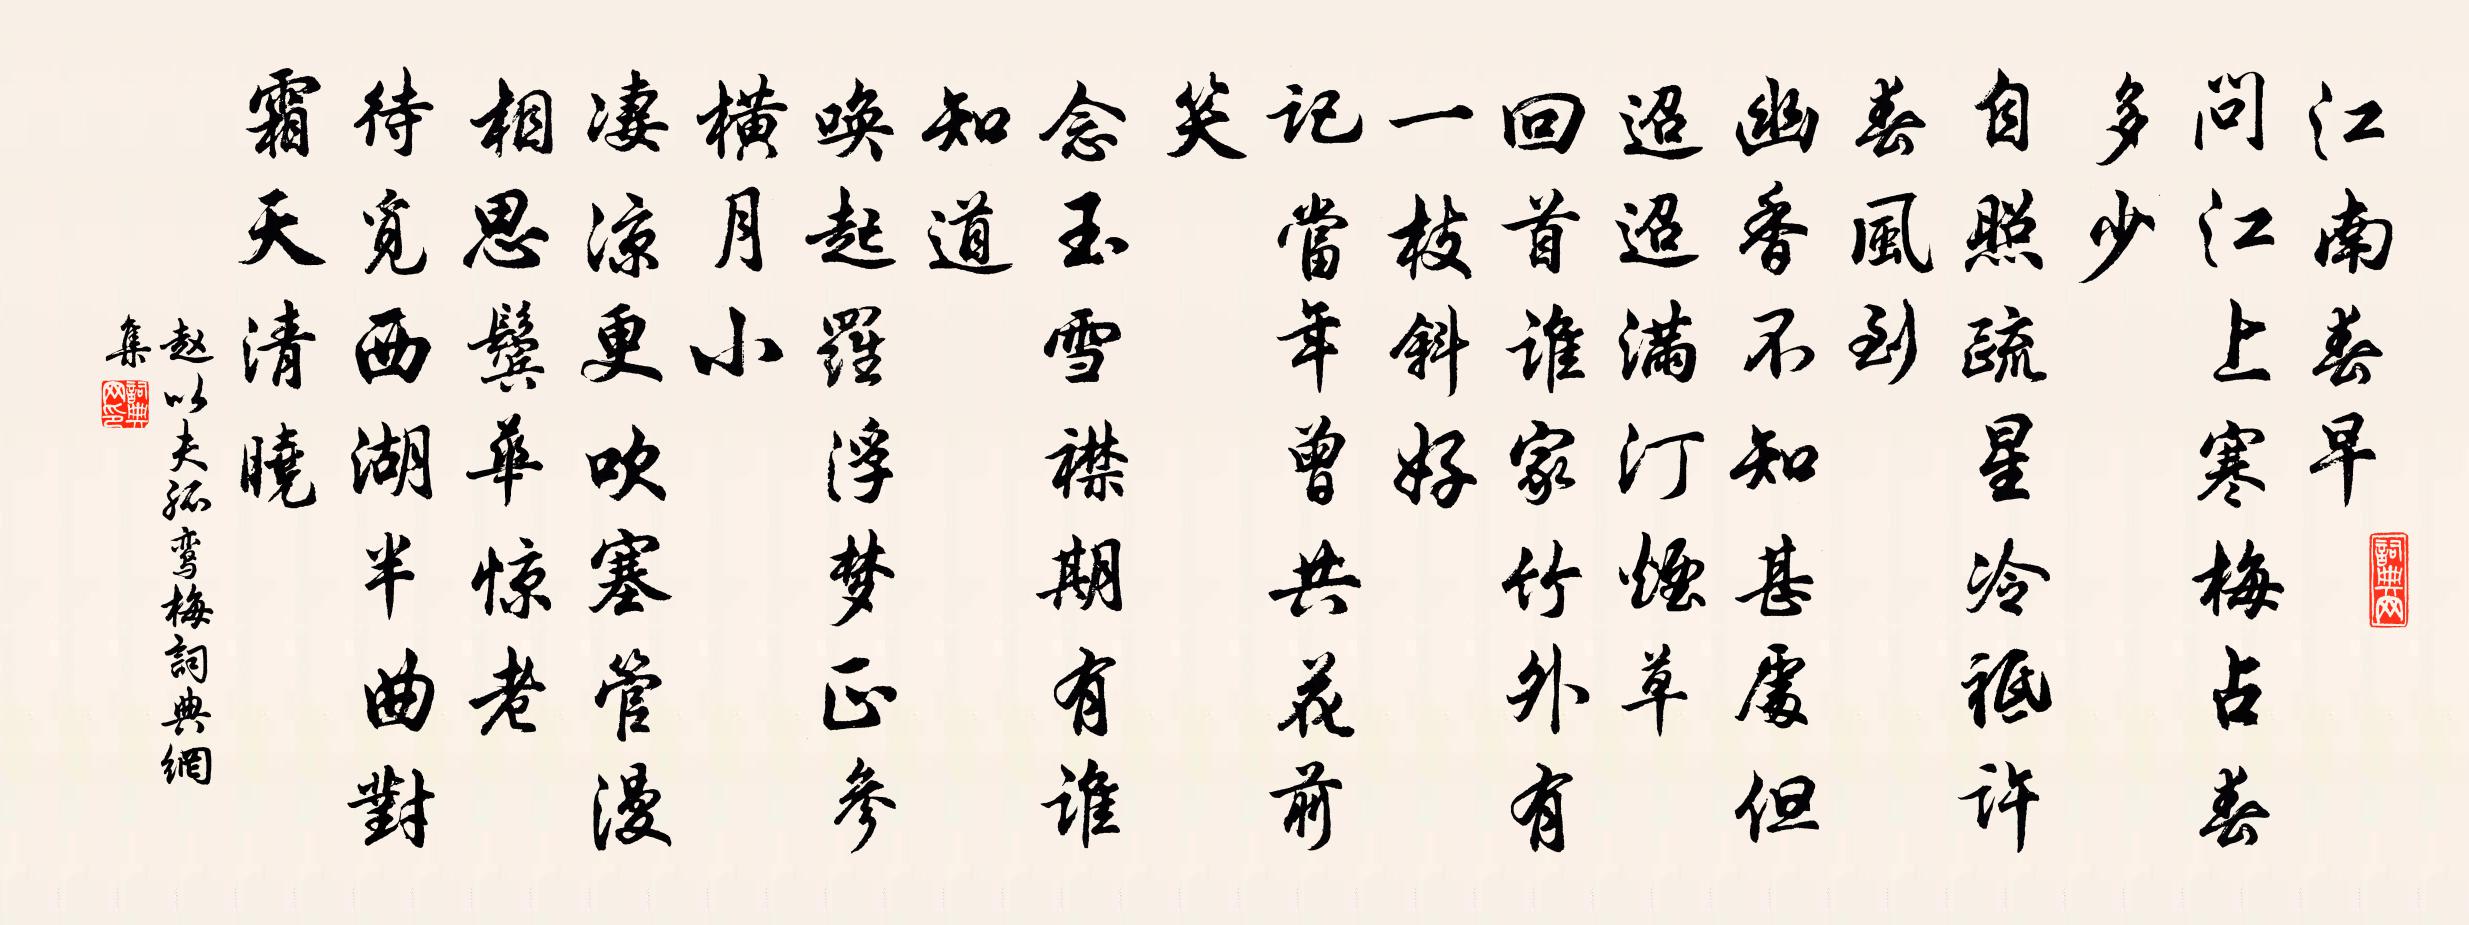 江南春早
問江上寒梅占春
多少
自照疏星冷祗許
春風到
幽香不知甚處但
迢迢滿汀煙草
回首誰家竹外有
一枝斜好
記當年曾共花前
笑
念玉雪襟期有誰
知道
喚起羅浮梦正參
橫月小
凄涼更吹塞管漫
相思鬢華惊老
待覓西湖半曲對
霜天清曉
赵以夫孤鸾梅詞典網
集
詞典網
詞典网印